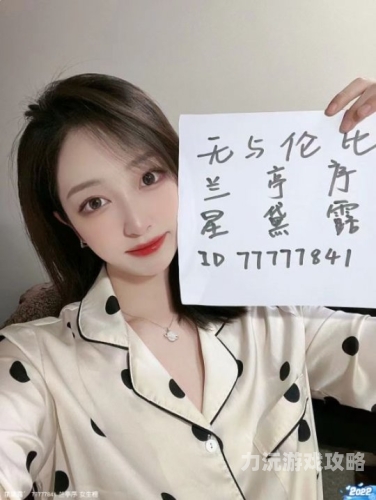 无与伦比
兰亭序
星黛露
ID 77777841
力玩游戏攻略
2022